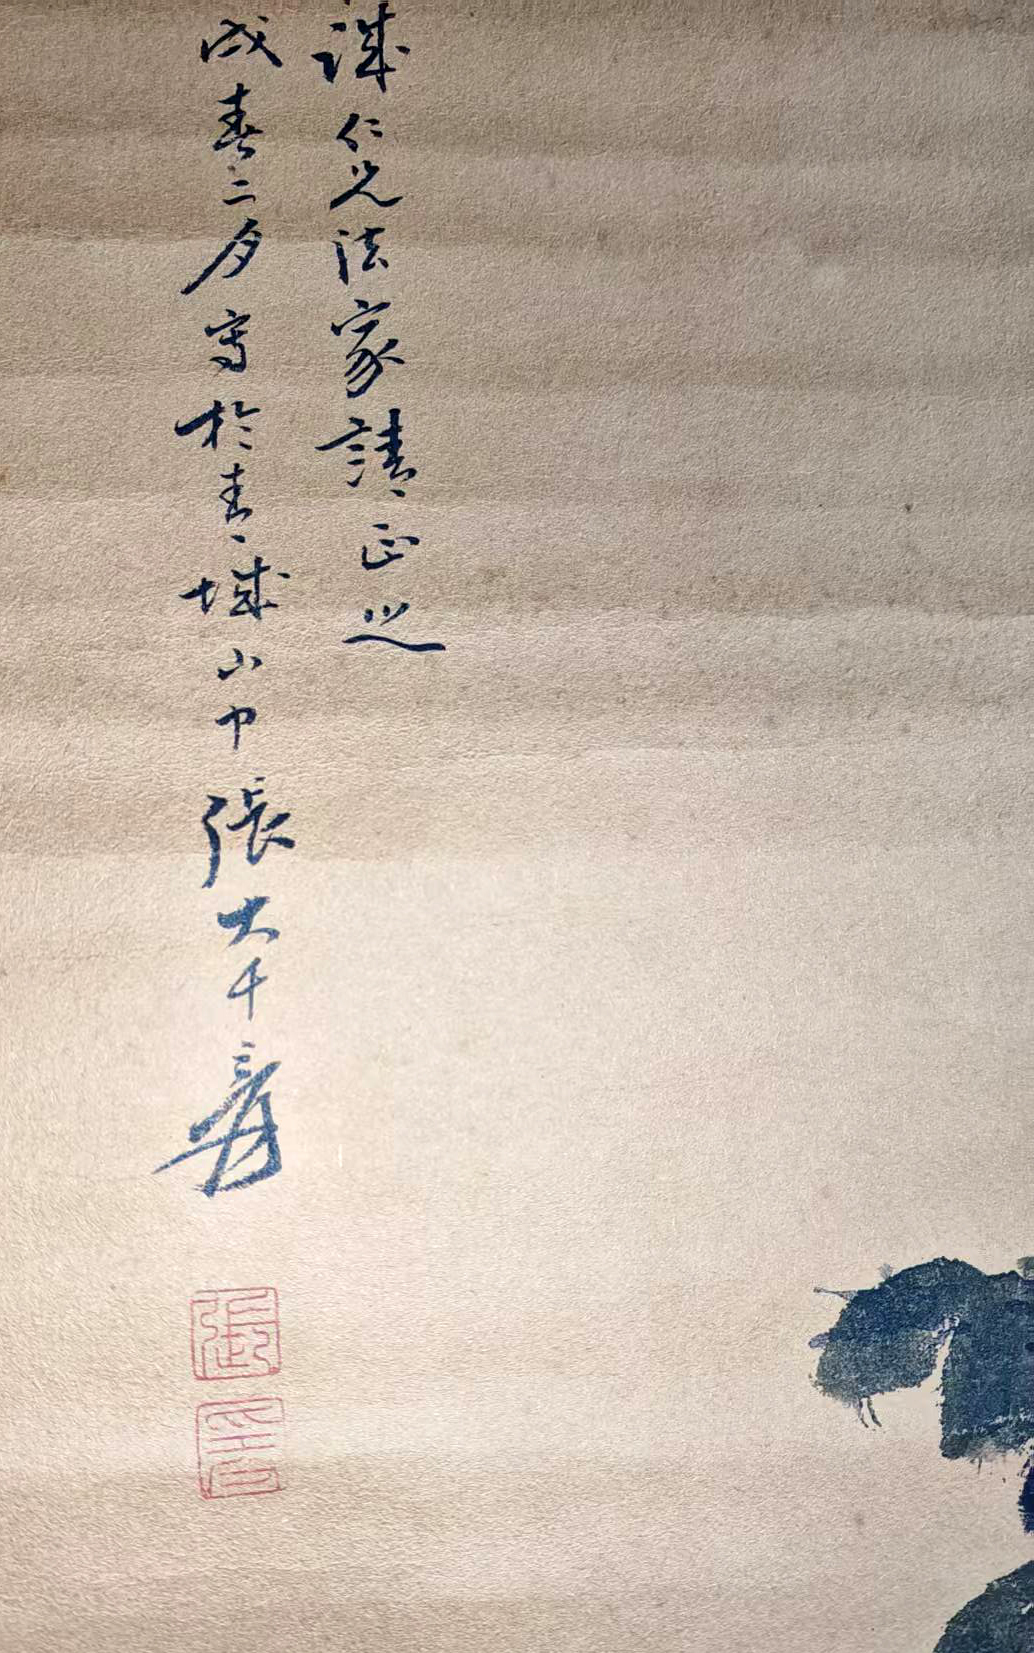 誠仁兄法家請正之
戌春二月寫於青城山中張大千爰